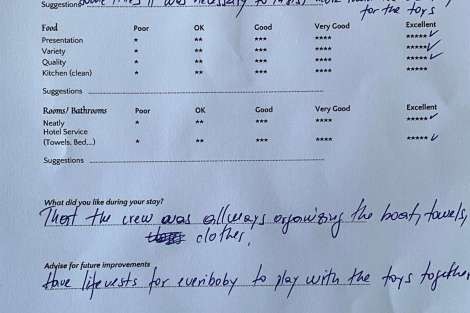 Suggestions some times it was necessary to
for the toys
Food Poor OK Good Very Good Excellent
Presentation * ** *** **** ***** ✓
Variety * ** *** **** ***** ✓
Quality * ** *** **** ***** ✓
Kitchen (clean) * ** *** **** *****
Suggestions
Rooms/ Bathrooms Poor OK Good Very Good Excellent
Neatly * ** *** **** ***** ✓
Hotel Service
(Towels, Bed,...) * ** *** **** ***** ✓
Suggestions
What did you like during your stay?
That the crew was allways organizing the boat, towels,
clothes,
Advise for future improvements
Have lifevests for everiboby to play with the toys together